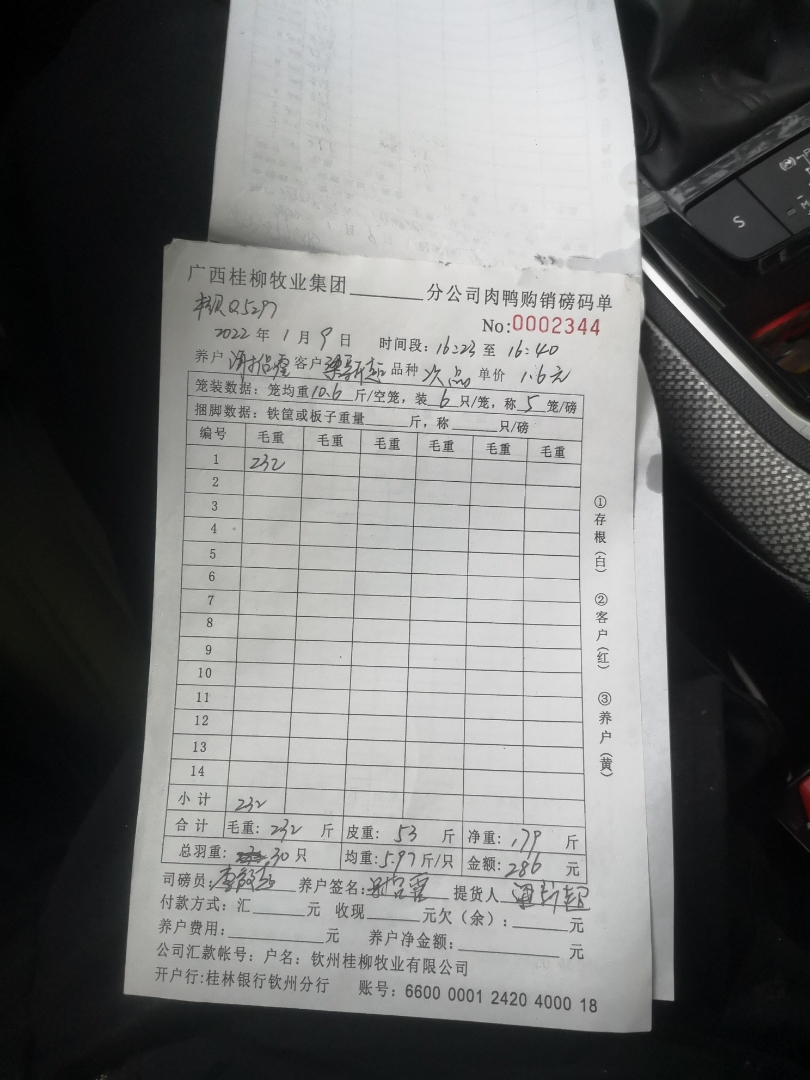 广西桂柳牧业集团________分公司肉鸭购销磅码单
Q5297
No:0002344
2022年1月9日 时间段:16:23至16:40
养户 客户 品种 次品 单价 1.6元
笼装数据:笼均重10.6斤/空笼,装6只/笼,称5笼/磅
捆脚数据:铁筐或板子重量____斤,称____只/磅
编号 毛重 毛重 毛重 毛重 毛重 毛重
1 232
2
3
4
5
6
7
8
9
10
11
12
13
14
小计 232
合计 毛重:232斤 皮重:53斤 净重:179斤
总羽重:30只 均重:5.97斤/只 金额:286元
司磅员: 养户签名: 提货人
付款方式:汇____元 收现____元欠(余):____元
养户费用:____元 养户净金额:____元
公司汇款帐号:户名:钦州桂柳牧业有限公司
开户行:桂林银行钦州分行 账号:6600 0001 2420 4000 18
①存根(白) ②客户(红) ③养户(黄)
S